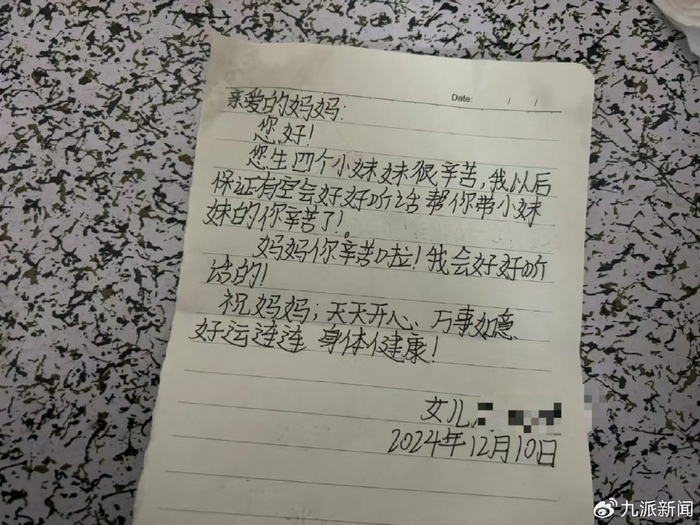 Date: / /
亲爱的妈妈：
您好！
您生四个小妹妹很辛苦，我以后
保证有空会好好听话帮你带小妹
妹的你辛苦了！。
妈妈你辛苦啦！我会好好听
话的！
祝妈妈；天天开心、万事如意
好运连连 身体健康！
女儿
2024年12月10日
九派新闻